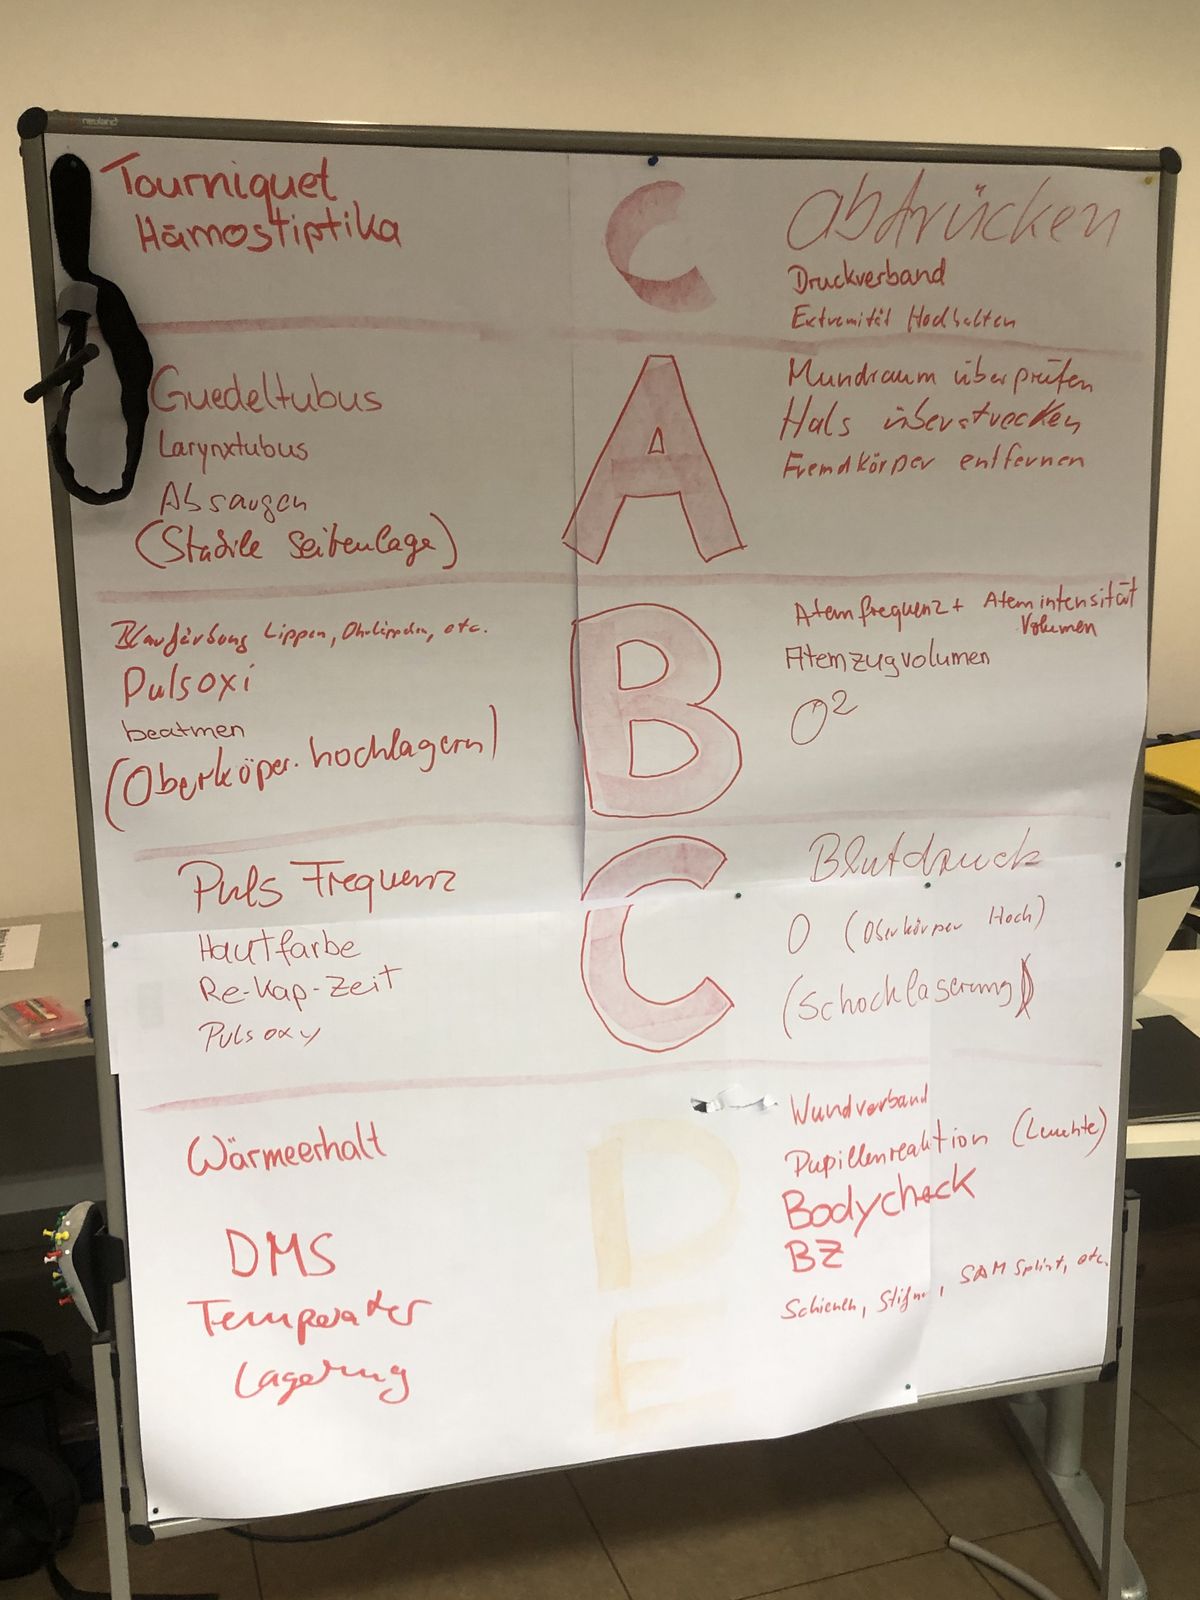 neuland
Tourniquet
Hämostiptika
C
abdrücken
Druckverband
Extremität Hochhalten
Guedeltubus
Larynxtubus
Absaugen
(Stabile Seitenlage)
A
Mundraum überprüfen
Hals überstrecken
Fremdkörper entfernen
Blaufärbung Lippen, Ohrläppchen, etc.
Pulsoxi
beatmen
(Oberköper. hochlagern)
B
Atemfrequenz + Atemintensität
Volumen
Atemzugvolumen
O²
Puls Frequenz
Hautfarbe
Re-Kap-Zeit
Pulsoxy
C
Blutdruck
O (Oberkörper Hoch)
(Schocklagerung)
Wärmeerhalt
DMS
Temperatur
Lagerung
D
E
Wundverband
Pupillenreaktion (Leuchte)
Bodycheck
BZ
Schienen, SAM Splint, etc.